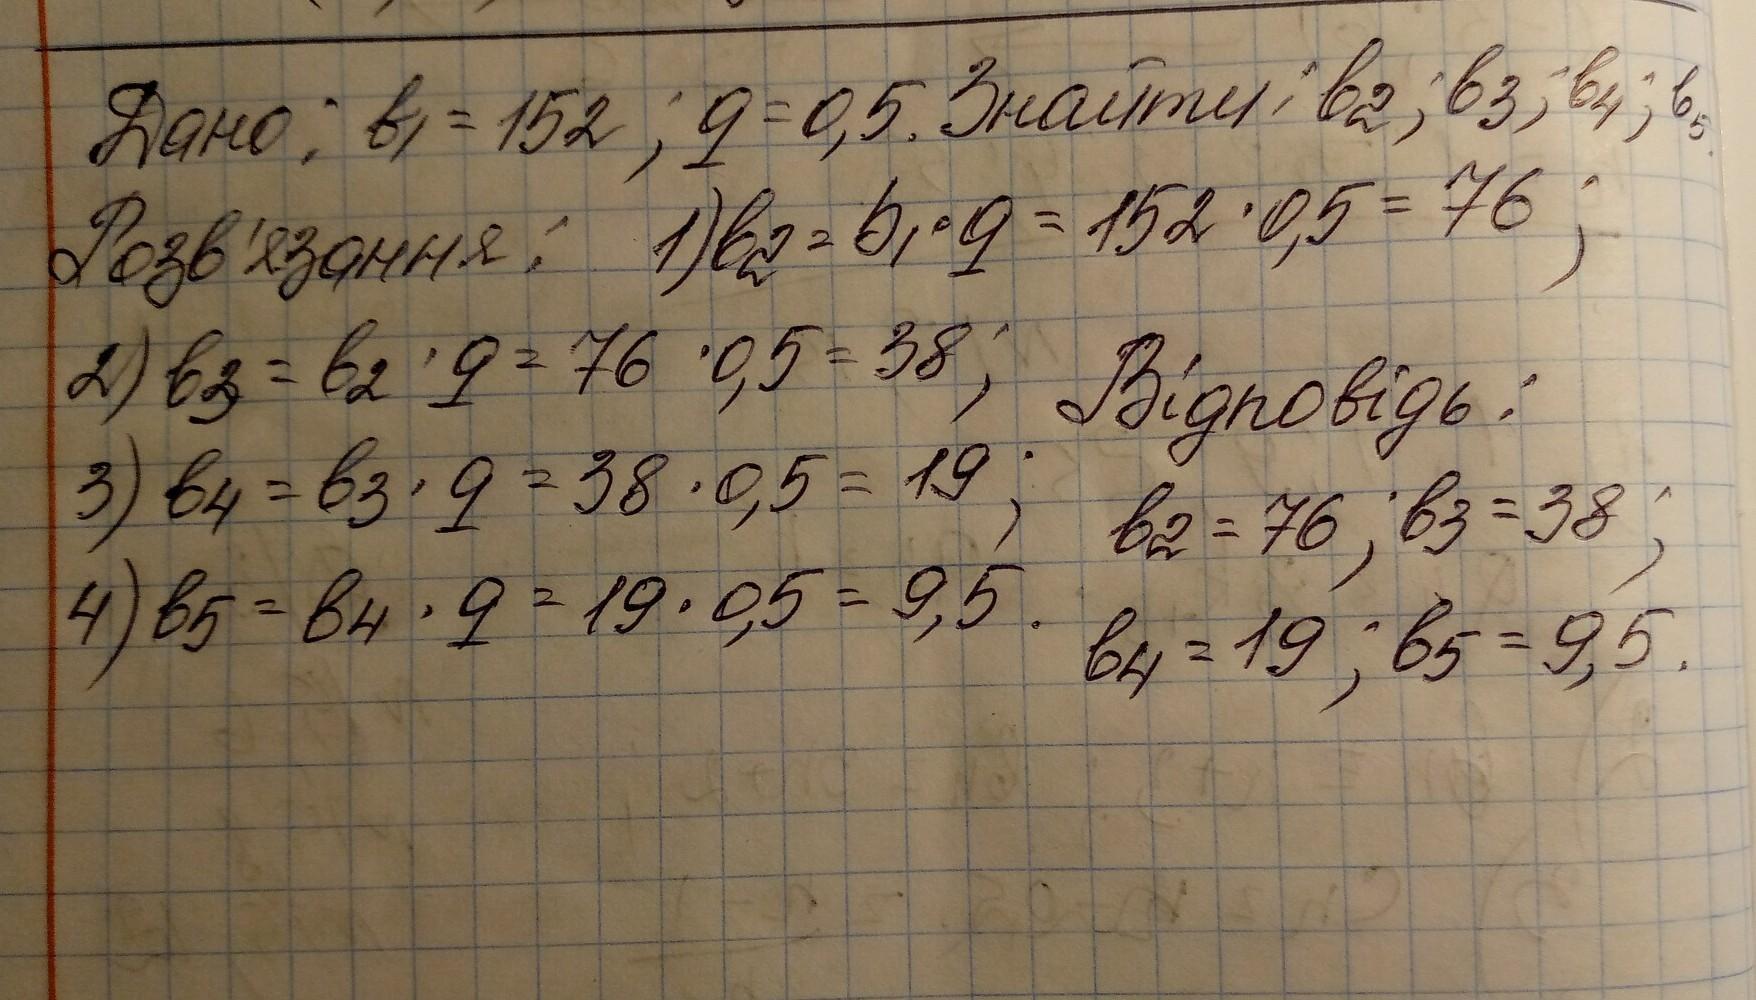 Дано: b1 = 152; q = 0,5. Знайти: b2; b3; b4; b5.
Розв'язання: 1) b2 = b1 · q = 152 · 0,5 = 76;
2) b3 = b2 · q = 76 · 0,5 = 38;
3) b4 = b3 · q = 38 · 0,5 = 19;
4) b5 = b4 · q = 19 · 0,5 = 9,5.
Відповідь:
b2 = 76; b3 = 38;
b4 = 19; b5 = 9,5.